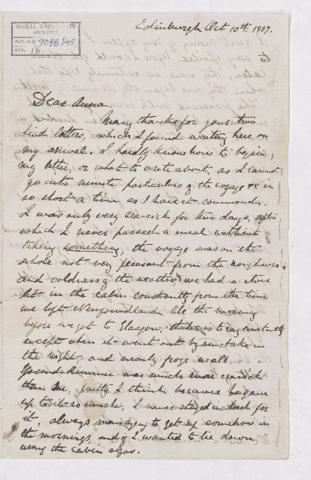 McGILL UNIV.
ARCHIVES
ACC. NO. 1098/45
REF. 16
Edinburgh Oct 10th 1867.
Dear Anna.
Many thanks for your two
kind letters, which I found waiting here on
my arrival. I hardly know how to begin
my letter, or what to write about, as I cannot
go into minute particulars of the voyage &c in
so short a time as I have at command.
I was only very sea-sick for two days, after
which I never passed a meal without
taking something, the voyage was on the
whole not very pleasant from the roughness
and coldness of the weather we had a stove
lit in the cabin constantly from the time
we left Newfoundland till the morning
before we got to Glasgow, that is to say constantly
except when it went out by mistake in
the night, and nearly froze us all.
was much more sea-sick
than me, partly I think because he gave
up to it so much, I never stayed in bed for
it, always managing to get up somehow in
the mornings, and if I wanted to lie down
using the cabin sofas.